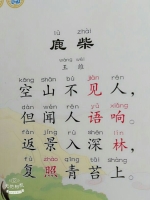 lù zhài
鹿柴
wáng wéi
王维
kōng shān bú jiàn rén
空山不见人，
dàn wén rén yǔ xiǎng
但闻人语响。
fǎn jǐng rù shēn lín
返景入深林，
fù zhào qīng tái shàng
复照青苔上。